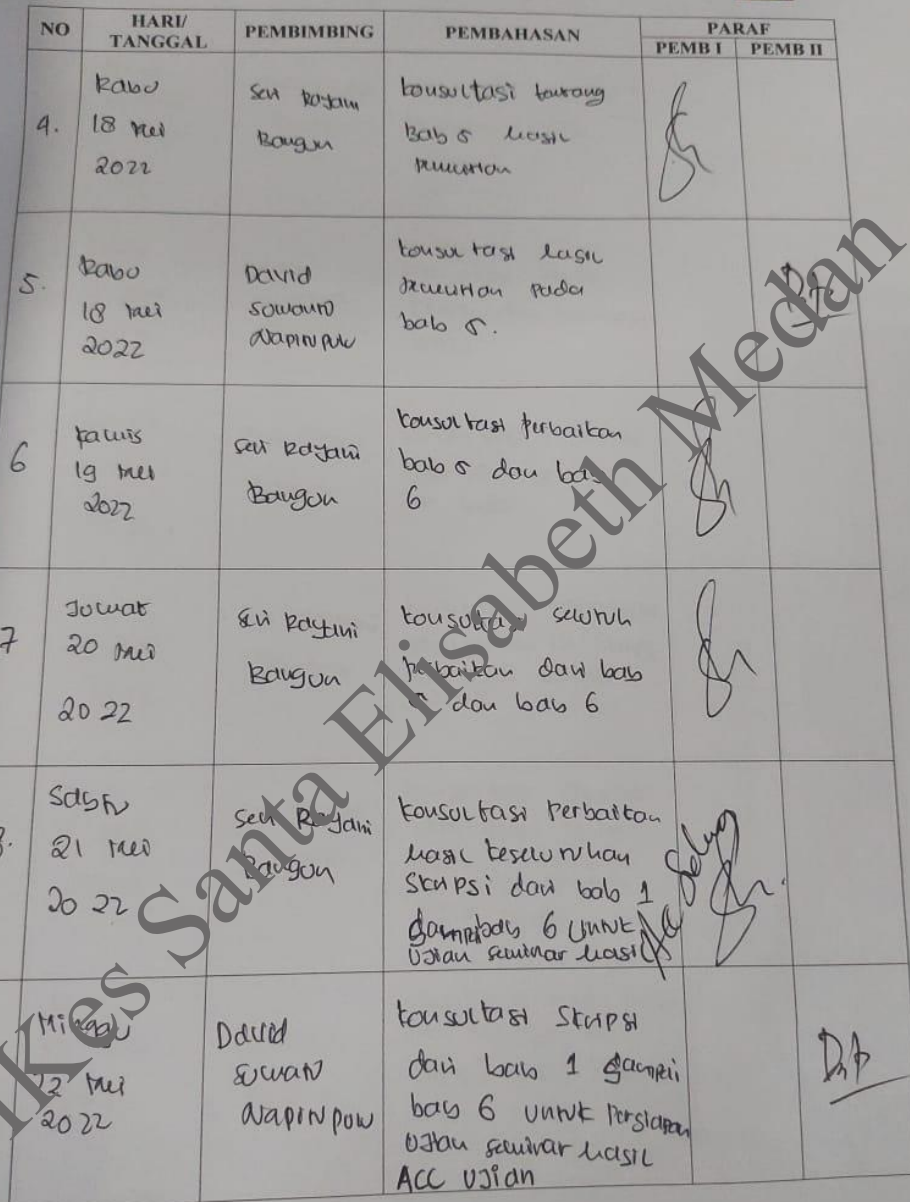 NO HARI/ TANGGAL PEMBIMBING PEMBAHASAN PARAF
PEMB I PEMB II
4.
Rabu
18 Mei
2022
Seri Rayani
Bangun
konsultasi tentang
Bab 5 hasil
penelitian
5.
Rabu
18 Mei
2022
David
Sumanto
Napitupulu
konsultasi hasil
penelitian pada
bab 5.
6
Kamis
19 Mei
2022
Seri Rayani
Bangun
konsultasi perbaikan
bab 5 dan bab
6
7
Jumat
20 Mei
2022
Seri Rayani
Bangun
konsultasi seluruh
perbaikan dari bab
5 dan bab 6
8.
Sabtu
21 Mei
2022
Seri Rayani
Bangun
konsultasi Perbaikan
hasil keseluruhan
Skripsi dari bab 1
sampai bab 6 untuk
Ujian seminar hasil
Minggu
22 Mei
2022
David
Napitupulu
konsultasi Skripsi
dari bab 1 sampai
bab 6 untuk Persiapan
Ujian seminar hasil
ACC Ujian
STIKes Santa Elisabeth Medan